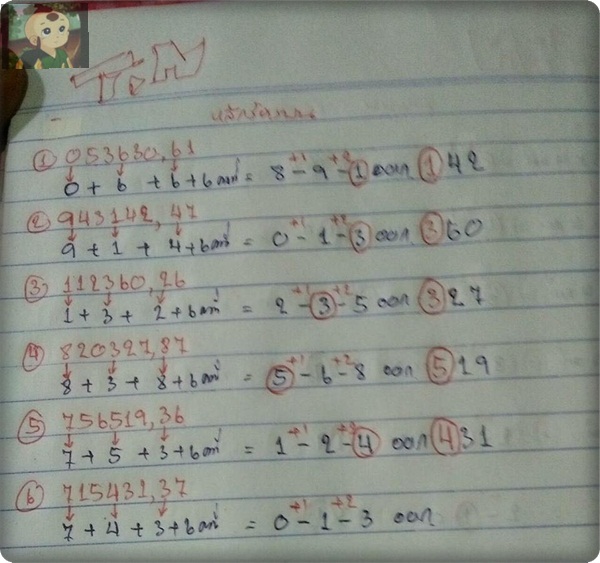 T.N
① 053630,61
0 + 6 + 6 + 6คที่ = 8 +1 - 9 +2 - 1 ออก 142
② 943142,47
9 + 1 + 4 + 6คที่ = 0 +1 - 1 +2 - 3 ออก 360
③ 112360,26
1 + 3 + 2 + 6คที่ = 2 +1 - 3 +2 - 5 ออก 327
④ 820327,87
8 + 3 + 8 + 6คที่ = 5 +1 - 6 +2 - 8 ออก 519
⑤ 756519,36
7 + 5 + 3 + 6คที่ = 1 +1 - 2 +2 - 4 ออก 431
⑥ 715431,37
7 + 4 + 3 + 6คที่ = 0 +1 - 1 +2 - 3 ออก